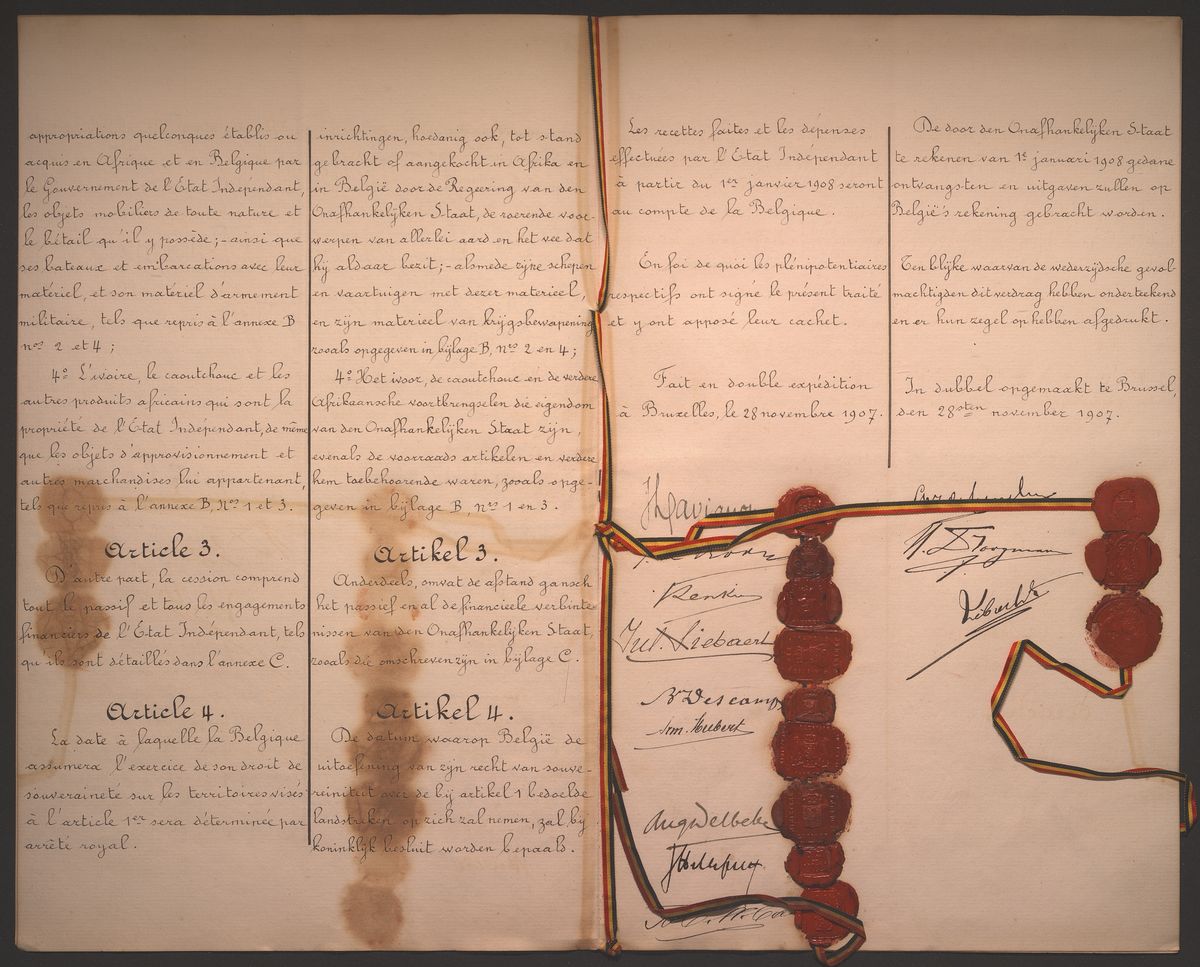 appropriations quelconques établis ou
acquis en Afrique et en Belgique par
le Gouvernement de l'État Indépendant,
les objets mobiliers de toute nature et
le bétail qu'il y possède; – ainsi que
ses bateaux et embarcations avec leur
matériel, et son matériel d'armement
militaire, tels que repris à l'annexe B
nos 2 et 4;
4º L'ivoire, le caoutchouc et les
autres produits africains qui sont la
propriété de l'État Indépendant, de même
que les objets d'approvisionnement et
autres marchandises lui appartenant,
tels que repris à l'annexe B, Nos 1 et 3.
Article 3.
D'autre part, la cession comprend
tout le passif et tous les engagements
financiers de l'État Indépendant, tels
qu'ils sont détaillés dans l'annexe C.
Article 4.
La date à laquelle la Belgique
assumera l'exercice de son droit de
souveraineté sur les territoires visés
à l'article 1er sera déterminée par
arrêté royal.
inrichtingen, hoedanig ook, tot stand
gebracht of aangekocht in Afrika en
in België door de Regeering van den
Onafhankelijken Staat, de roerende voor-
werpen van allerlei aard en het vee dat
hij aldaar bezit; – alsmede zijne schepen
en vaartuigen met dezer materieel,
en zijn materieel van krijgsbewapening
zooals opgegeven in bijlage B, nos 2 en 4;
4º Het ivoor, de caoutchouc en de verdere
Afrikaansche voortbrengselen die eigendom
van den Onafhankelijken Staat zijn,
evenals de voorraads artikelen en verdere
hem toebehoorende waren, zooals opge-
geven in bijlage B, nos 1 en 3.
Artikel 3.
Anderdeels, omvat de afstand gansch
het passief en al de financieele verbinte
nissen van den Onafhankelijken Staat,
zooals die omschreven zijn in bijlage C.
Artikel 4.
De datum waarop België de
uitoefening van zijn recht van souve-
reiniteit over de bij artikel 1 bedoelde
landstreken op zich zal nemen, zal bij
koninklijk besluit worden bepaald.
Les recettes faites et les dépenses
effectuées par l'État Indépendant
à partir du 1er janvier 1908 seront
au compte de la Belgique.
En foi de quoi les plénipotentiaires
respectifs ont signé le présent traité
et y ont apposé leur cachet.
Fait en double expédition
à Bruxelles, le 28 novembre 1907.
De door den Onafhankelijken Staat
te rekenen van 1e januari 1908 gedane
ontvangsten en uitgaven zullen op
België's rekening gebracht worden.
Ten blijke waarvan de wederzijdsche gevol
machtigden dit verdrag hebben onderteekend
en er hun zegel op hebben afgedrukt.
In dubbel opgemaakt te Brussel,
den 28sten november 1907.
Davignon
Renkin
Jul. Liebaert
Descamps
Arm. Hubert
Aug Delbeke